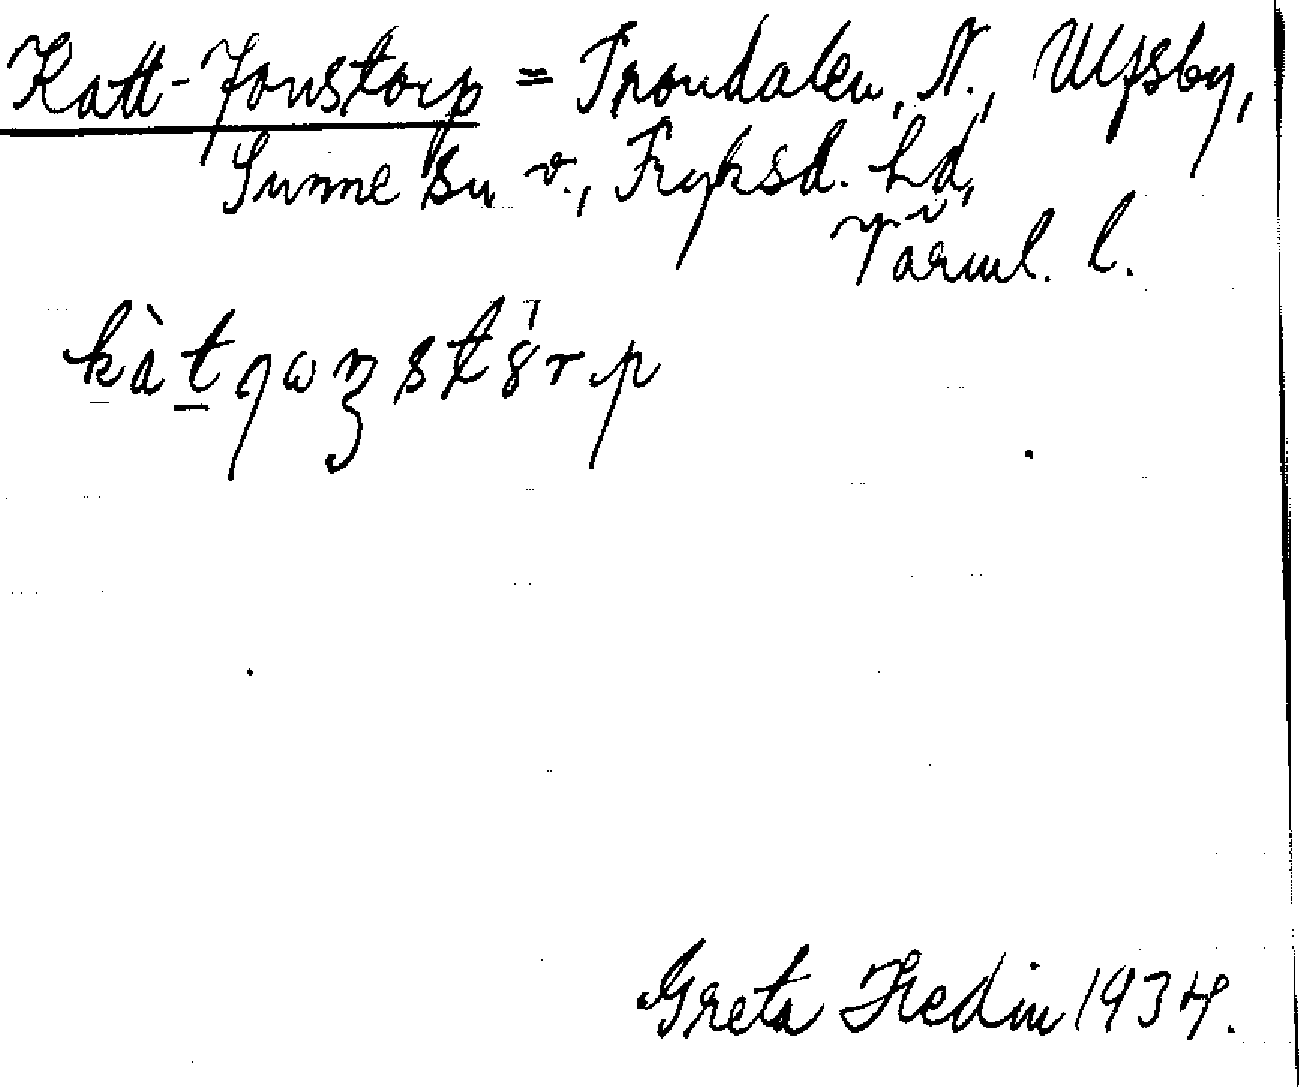 Katt-Jonstorp = Trondalen, N., Ulfsby,
Sunne sn v., Fryksd. hd,
Värml. l.
kàt̠ȷωꞃstȣ́rp
Greta Hedin 1934.